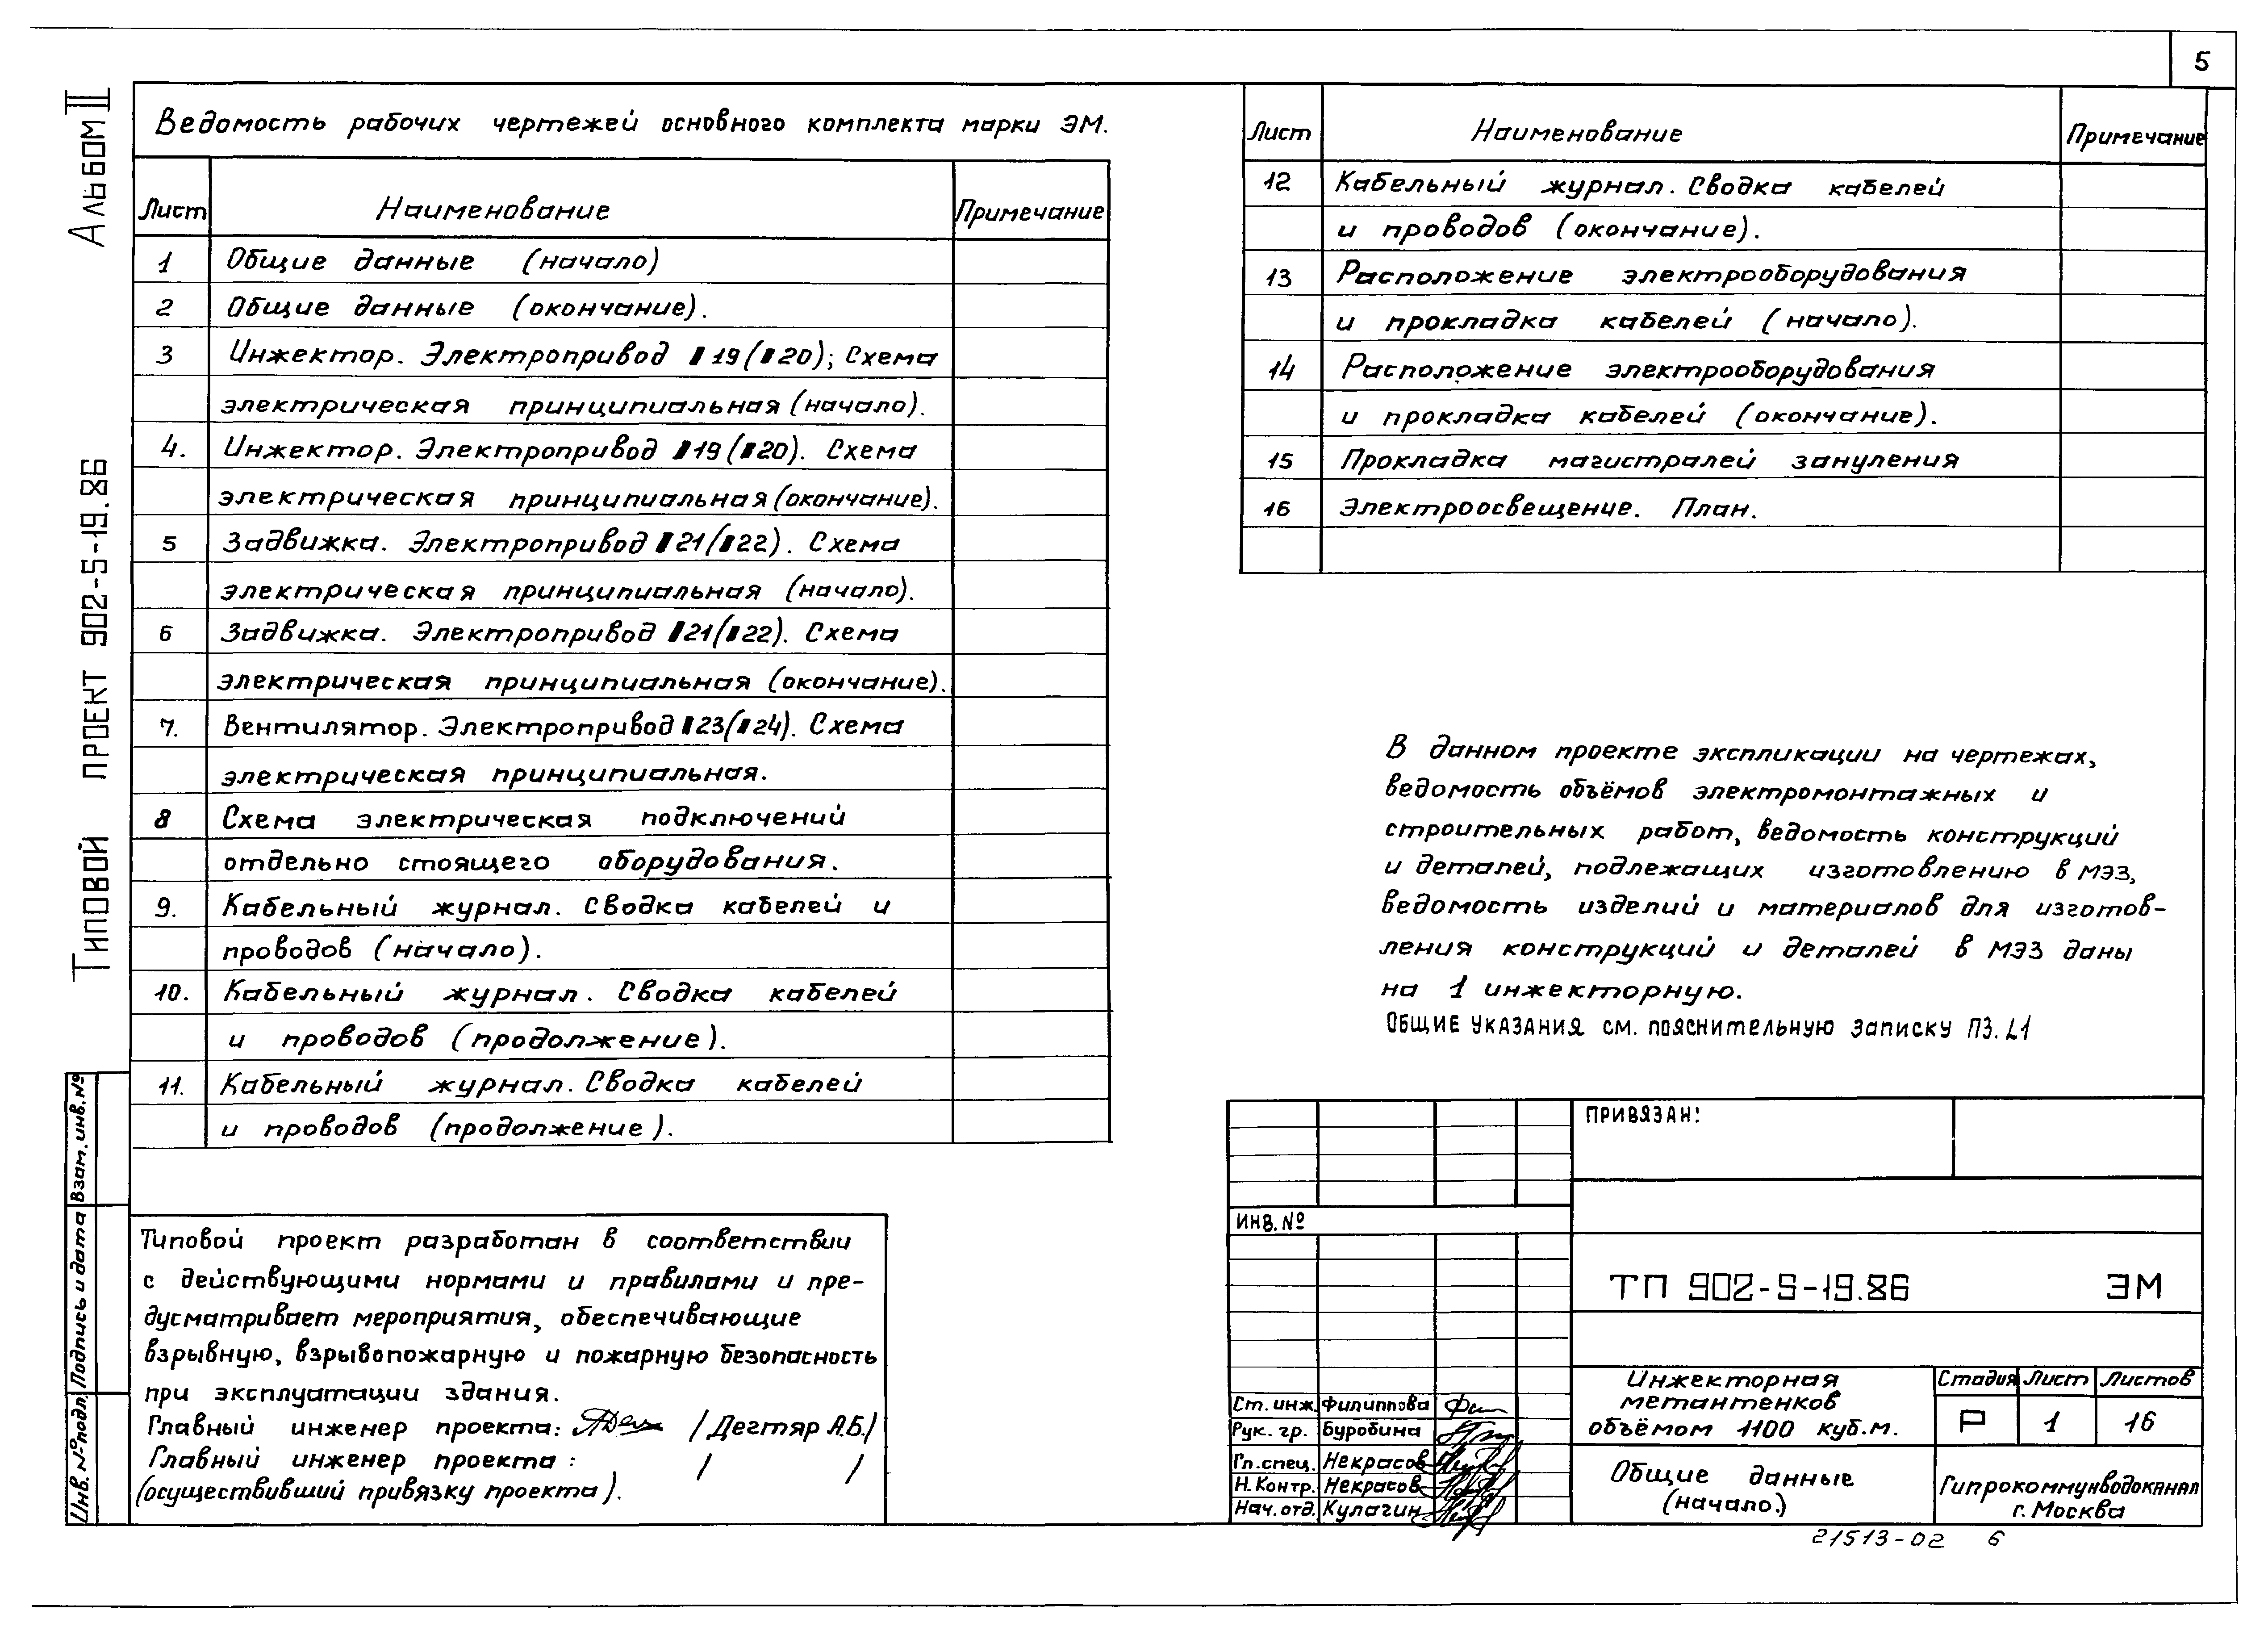 5
Альбом II
Типовой проект 902-5-19.86
Ведомость рабочих чертежей основного комплекта марки ЭМ.
Лист Наименование Примечание
1 Общие данные (начало)
2 Общие данные (окончание).
3 Инжектор. Электропривод 19 (20); Схема
электрическая принципиальная (начало).
4. Инжектор. Электропривод 19 (20). Схема
электрическая принципиальная (окончание).
5 Задвижка. Электропривод 21 (22). Схема
электрическая принципиальная (начало).
6 Задвижка. Электропривод 21 (22). Схема
электрическая принципиальная (окончание).
7. Вентилятор. Электропривод 23 (24). Схема
электрическая принципиальная.
8 Схема электрическая подключений
отдельно стоящего оборудования.
9. Кабельный журнал. Сводка кабелей и
проводов (начало).
10. Кабельный журнал. Сводка кабелей
и проводов (продолжение).
11. Кабельный журнал. Сводка кабелей
и проводов (продолжение).
Лист Наименование Примечание
12 Кабельный журнал. Сводка кабелей
и проводов (окончание).
13 Расположение электрооборудования
и прокладка кабелей (начало).
14 Расположение электрооборудования
и прокладка кабелей (окончание).
15 Прокладка магистралей зануления
16 Электроосвещение. План.
В данном проекте экспликации на чертежах,
ведомость объёмов электромонтажных и
строительных работ, ведомость конструкций
и деталей, подлежащих изготовлению в МЭЗ,
ведомость изделий и материалов для изготов-
ления конструкций и деталей в МЭЗ даны
на 1 инжекторную.
Общие указания см. пояснительную записку ПЗ. L1
Типовой проект разработан в соответствии
с действующими нормами и правилами и пре-
дусматривает мероприятия, обеспечивающие
взрывную, взрывопожарную и пожарную безопасность
при эксплуатации здания.
Главный инженер проекта: /Дегтяр А.Б./
Главный инженер проекта: / /
(осуществивший привязку проекта).
Взам. инв. №
Подпись и дата
Инв. № подл.
Привязан:
Инв. №
ТП 902-5-19.86 ЭМ
Ст. инж. Филиппова
Рук. гр. Буробина
Гл. спец. Некрасов
Н. Контр. Некрасов
Нач. отд. Кулагин
Инжекторная
метантенков
объёмом 1100 куб.м.
Стадия Лист Листов
Р 1 16
Общие данные
(начало.)
Гипрокоммунводоканал
г. Москва
21513-02 6